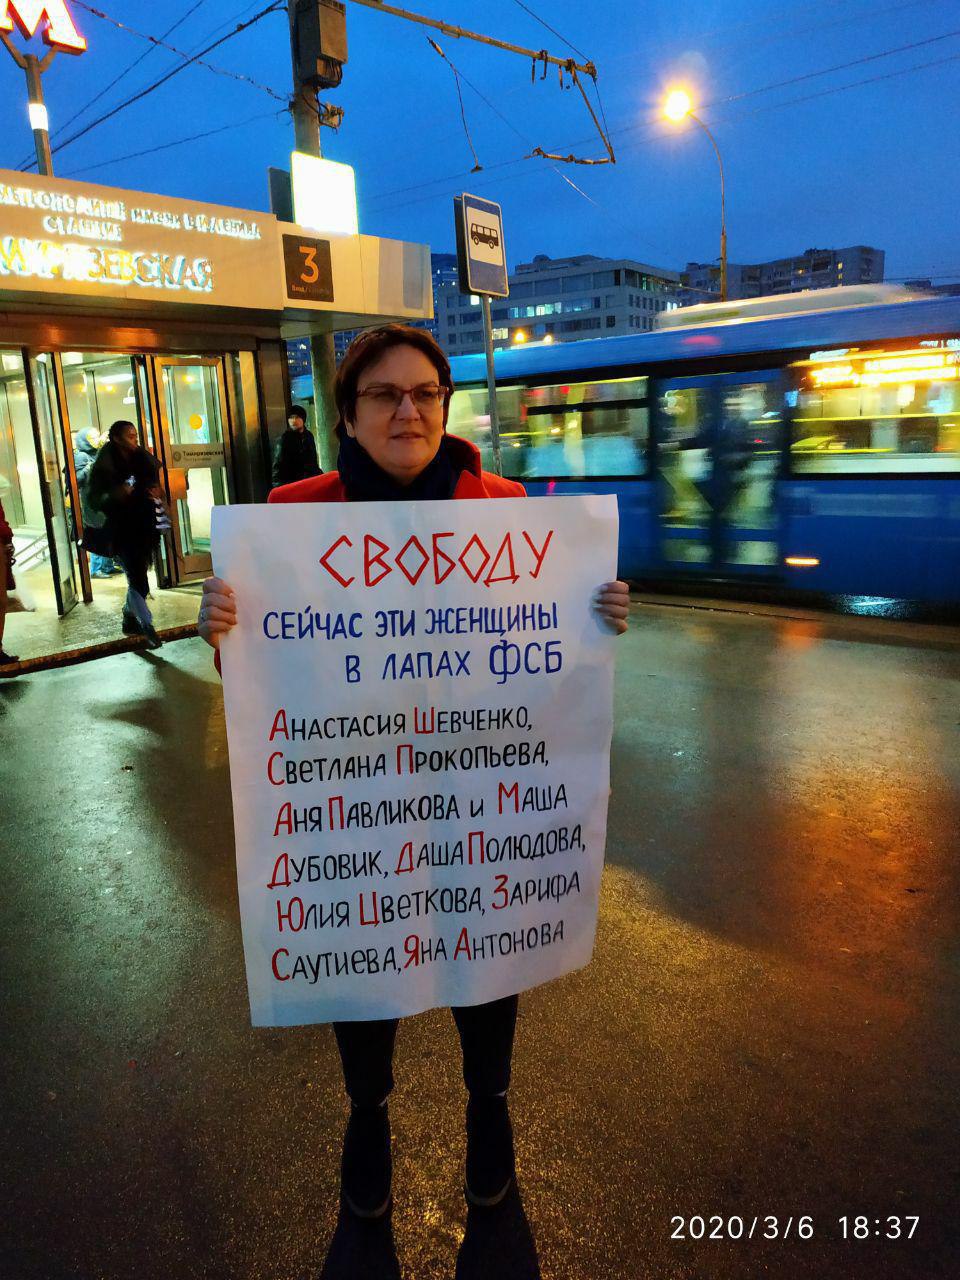 М
МЕТРОПОЛИТЕН ИМЕНИ В.И.ЛЕНИНА
СТАНЦИЯ
3
Тимирязевская
СВОБОДУ
СЕЙЧАС ЭТИ ЖЕНЩИНЫ
В ЛАПАХ ФСБ
АНАСТАСИЯ ШЕВЧЕНКО,
СВЕТЛАНА ПРОКОПЬЕВА,
АНЯ ПАВЛИКОВА и МАША
ДУБОВИК, ДАША ПОЛЮДОВА,
ЮЛИЯ ЦВЕТКОВА, ЗАРИФА
САУТИЕВА, ЯНА АНТОНОВА
2020/3/6 18:37